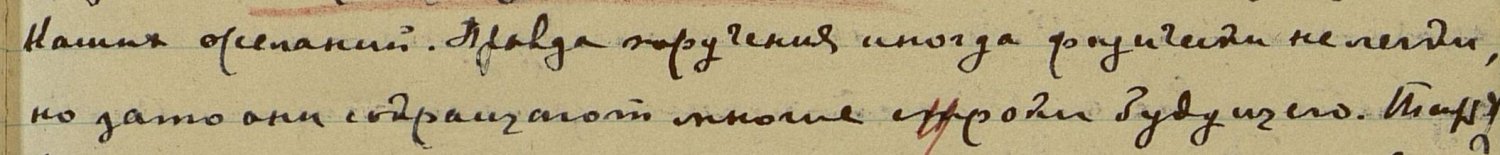 Наших желаний. Правда поручения иногда физически не легки,
но зато они сокращают многие сроки будущего.